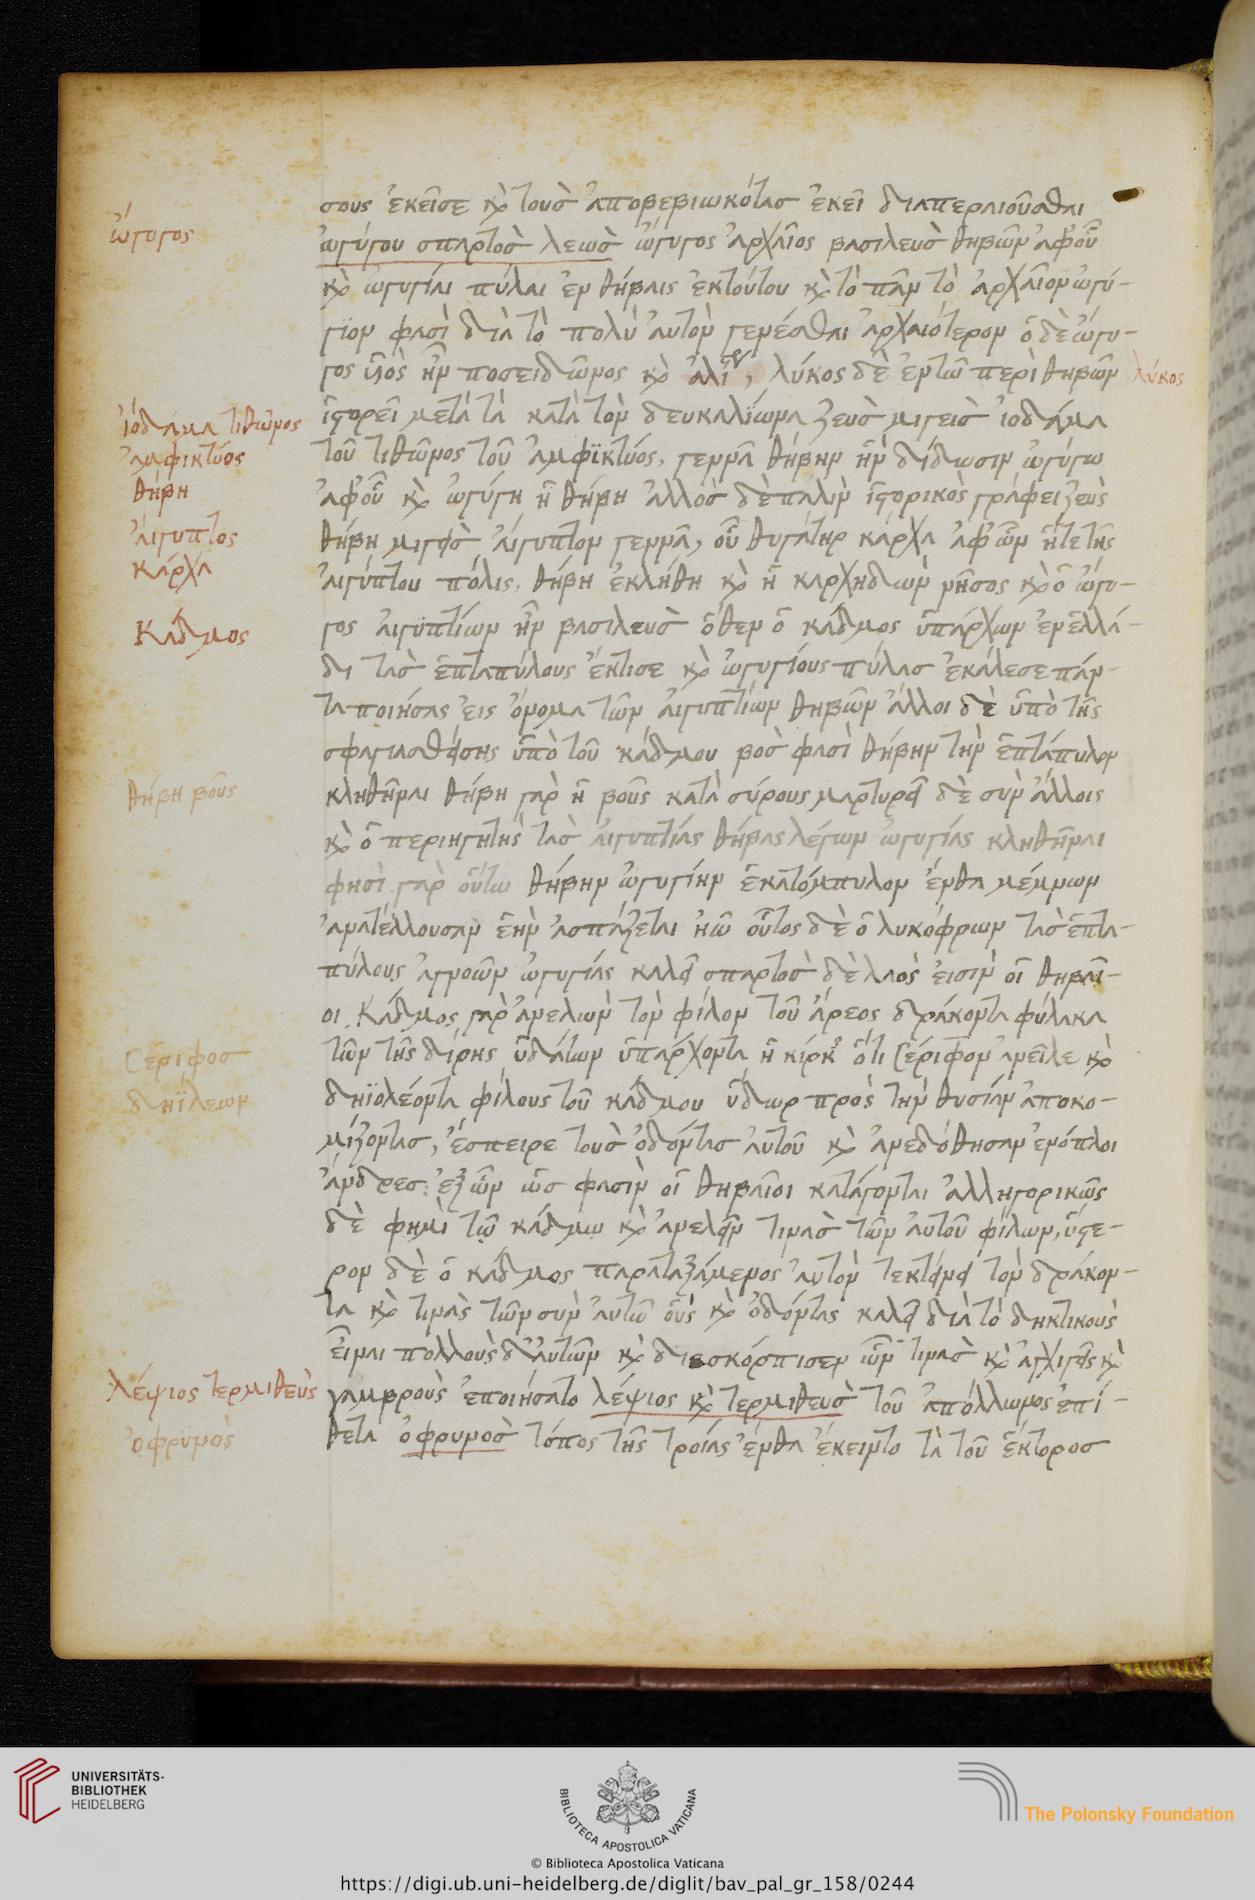 σους ἐκεῖσε κỳ τοὺσ ἀποβεβιωκότασ ἐκεῖ διαπεραιοῦσθαι
ὤγυγος
ὠγύγου σπαρτὸσ λεὼσ ὤγυγος ἀρχαῖος βασιλεὺσ θηβῶν ἀφοῦ
κỳ ὠγυγίαι πύλαι ἐν θήβαις ἐκτούτου κỳ τὸ πᾶν τὸ ἀρχαῖον ὠγύ-
γϊον φασὶ διὰ τὸ πολὺ αὐτὸν γενέσθαι ἀρχαιότερον ὁ δὲ ὤγυ-
γος ϋἱὸς ἦν ποσειδῶνος κỳ, λύκος δὲ ἐντῶ περὶ θηβῶν
λύκος
ἱστορεῖ μετὰ τὰ κατὰ τὸν δευκαλίωνα ζεὺσ μιγεὶσ ἰοδάμα
ἰόδαμα τιθῶνος
τοῦ τιθῶνος τοῦ ἀμφϊκτύος, γεννᾶ θήβην ἣν δίδωσιν ὠγύγω
ἀμφικτύος
ἀφοῦ κỳ ὠγύγη ἡ θήβη ἄλλοσ δὲ πάλιν ἱστορικὸς γράφει ζεὺς
θήβη
θήβη μιγεὶσ αἴγυπτον γεννᾶ, οὗ θυγάτηρ κάρχα ἀφῶν ἥτε τῆς
αἴγυπτος
αἰγύπτου πόλις, θήβη ἐκλήθη κỳ ἡ καρχηδὼν νῆσος κỳ ὁ ὤγυ-
κάρχα
γος αἰγϋπτίων ἦν βασιλεὺσ ὅθεν ὁ κάδμος ὑπάρχων ἐν ἑλλά-
Κάδμος
δι τὰσ ἑπταπύλους ἔκτισε κỳ ὠγυγίους πύλασ ἐκάλεσε πάν-
τα ποιήσας εἰς ὄνομα τῶν αἰγυπτίων θηβῶν ἄλλοι δὲ ὑπὸ τῆς
σφαγιασθείσης ὑπὸ τοῦ κάδμου βοὸσ φασὶ θήβην τὴν ἑπτάπυλον
κληθῆναι θήβη γὰρ ἡ βοῦς κατὰ σύρους μαρτυρεῖ δὲ σὺν ἄλλοις
θήβη βοῦς
κỳ ὁ περιηγητὴς τὰσ αἰγυπτίας θήβας λέγων ὠγυγίας κληθῆναι
φησὶ γὰρ οὕτω θήβην ὠγυγίην ἑκατόμπυλον ἔνθα μέμνων
ἀνατέλλουσαν ἑὴν ἀσπάζεται ἠῶ οὗτος δὲ ὁ λυκόφρων τὰσ ἑπτα-
πύλους ἀγνοῶν ὠγυγίας καλεῖ σπαρτὸσ δὲ λαὸς εἰσὶν οἱ θηβαῖ-
οι. Κάδμος γὰρ ἀνελὼν τὸν φίλον τοῦ ἄρεος δράκοντα φύλακα
τῶν τῆς δίρης ὑδάτων ὑπάρχοντα ἢ ὅτι σέριφον ἀνεῖλε κỳ
Σέριφοσ
δηϊολέοντα φίλους τοῦ κάδμου ὕδωρ πρὸς τὴν θυσίαν ἀποκο-
δηΐλεων
μίζοντασ, ἔσπειρε τοὺσ ὀδόντασ αὐτοῦ κỳ ἀνεδόθησαν ἐνόπλοι
ἄνδρεσ. ἐξῶν ὣσ φασὶν οἱ θηβαῖοι κατάγονται ἀλληγορικῶς
δὲ φημὶ τῶ κάδμω κỳ ἀνελεῖν τινὰσ τῶν αὐτοῦ φίλων, ὕστε-
ρον δὲ ὁ κάδμος παραταξάμενος αὐτὸν τεκτείνει τὸν δράκον-
τα κỳ τινὰς τῶν σὺν αὐτῶ οὓς κỳ ὀδόντας καλεῖ διὰ τὸ δηκτικοὺς
εἶναι πολλοὺς δ' αὐτῶν κỳ διεσκόρπισεν ὧν τινὰσ κỳ ἀγχιστεῖς κỳ
γαμβροὺς ἐποιήσατο λέψιος κỳ τερμιθεὺσ τοῦ ἀπόλλωνος ἐπί-
λέψιος τερμιθεὺς
θετα ὀφρυνοσ τόπος τῆς τροίας ἔνθα ἔκειντο τὰ τοῦ ἕκτοροσ
ὀφρυνὸς
UNIVERSITÄTS-
BIBLIOTHEK
HEIDELBERG
BIBLIOTECA APOSTOLICA VATICANA
The Polonsky Foundation
© Biblioteca Apostolica Vaticana
https://digi.ub.uni-heidelberg.de/diglit/bav_pal_gr_158/0244